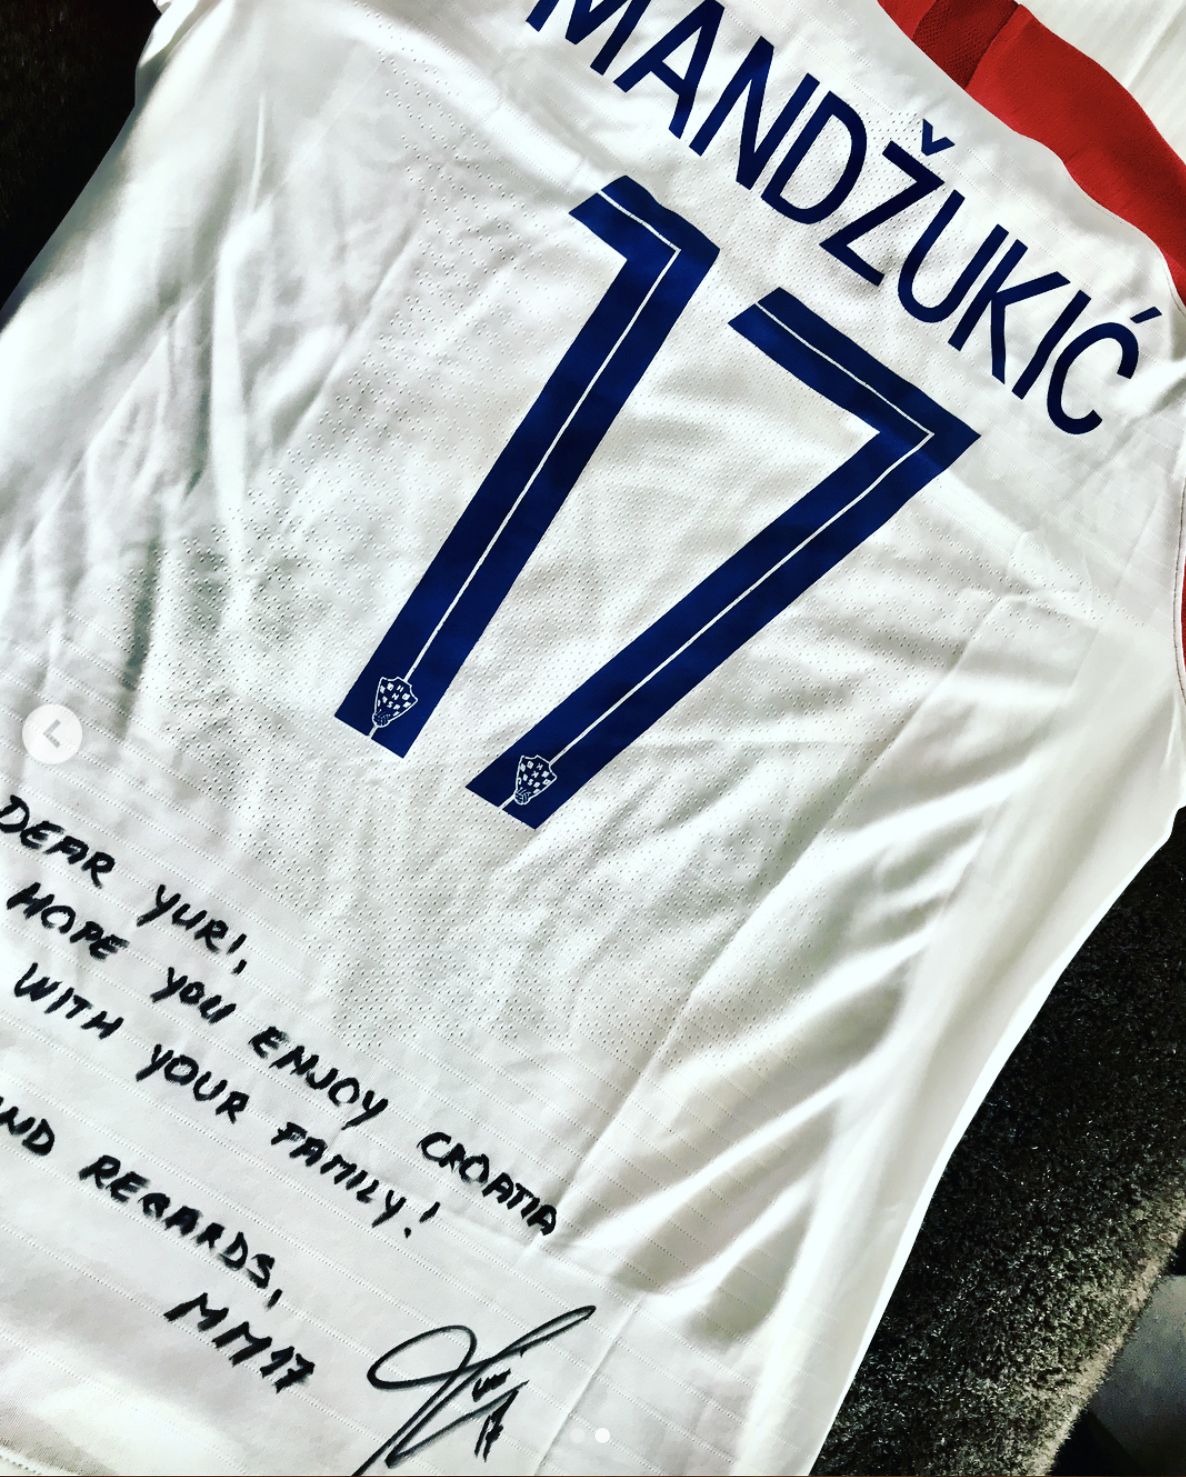 MANDŽUKIĆ
17
DEAR YURI,
HOPE YOU ENJOY CROATIA
WITH YOUR FAMILY!
REGARDS,
MM17